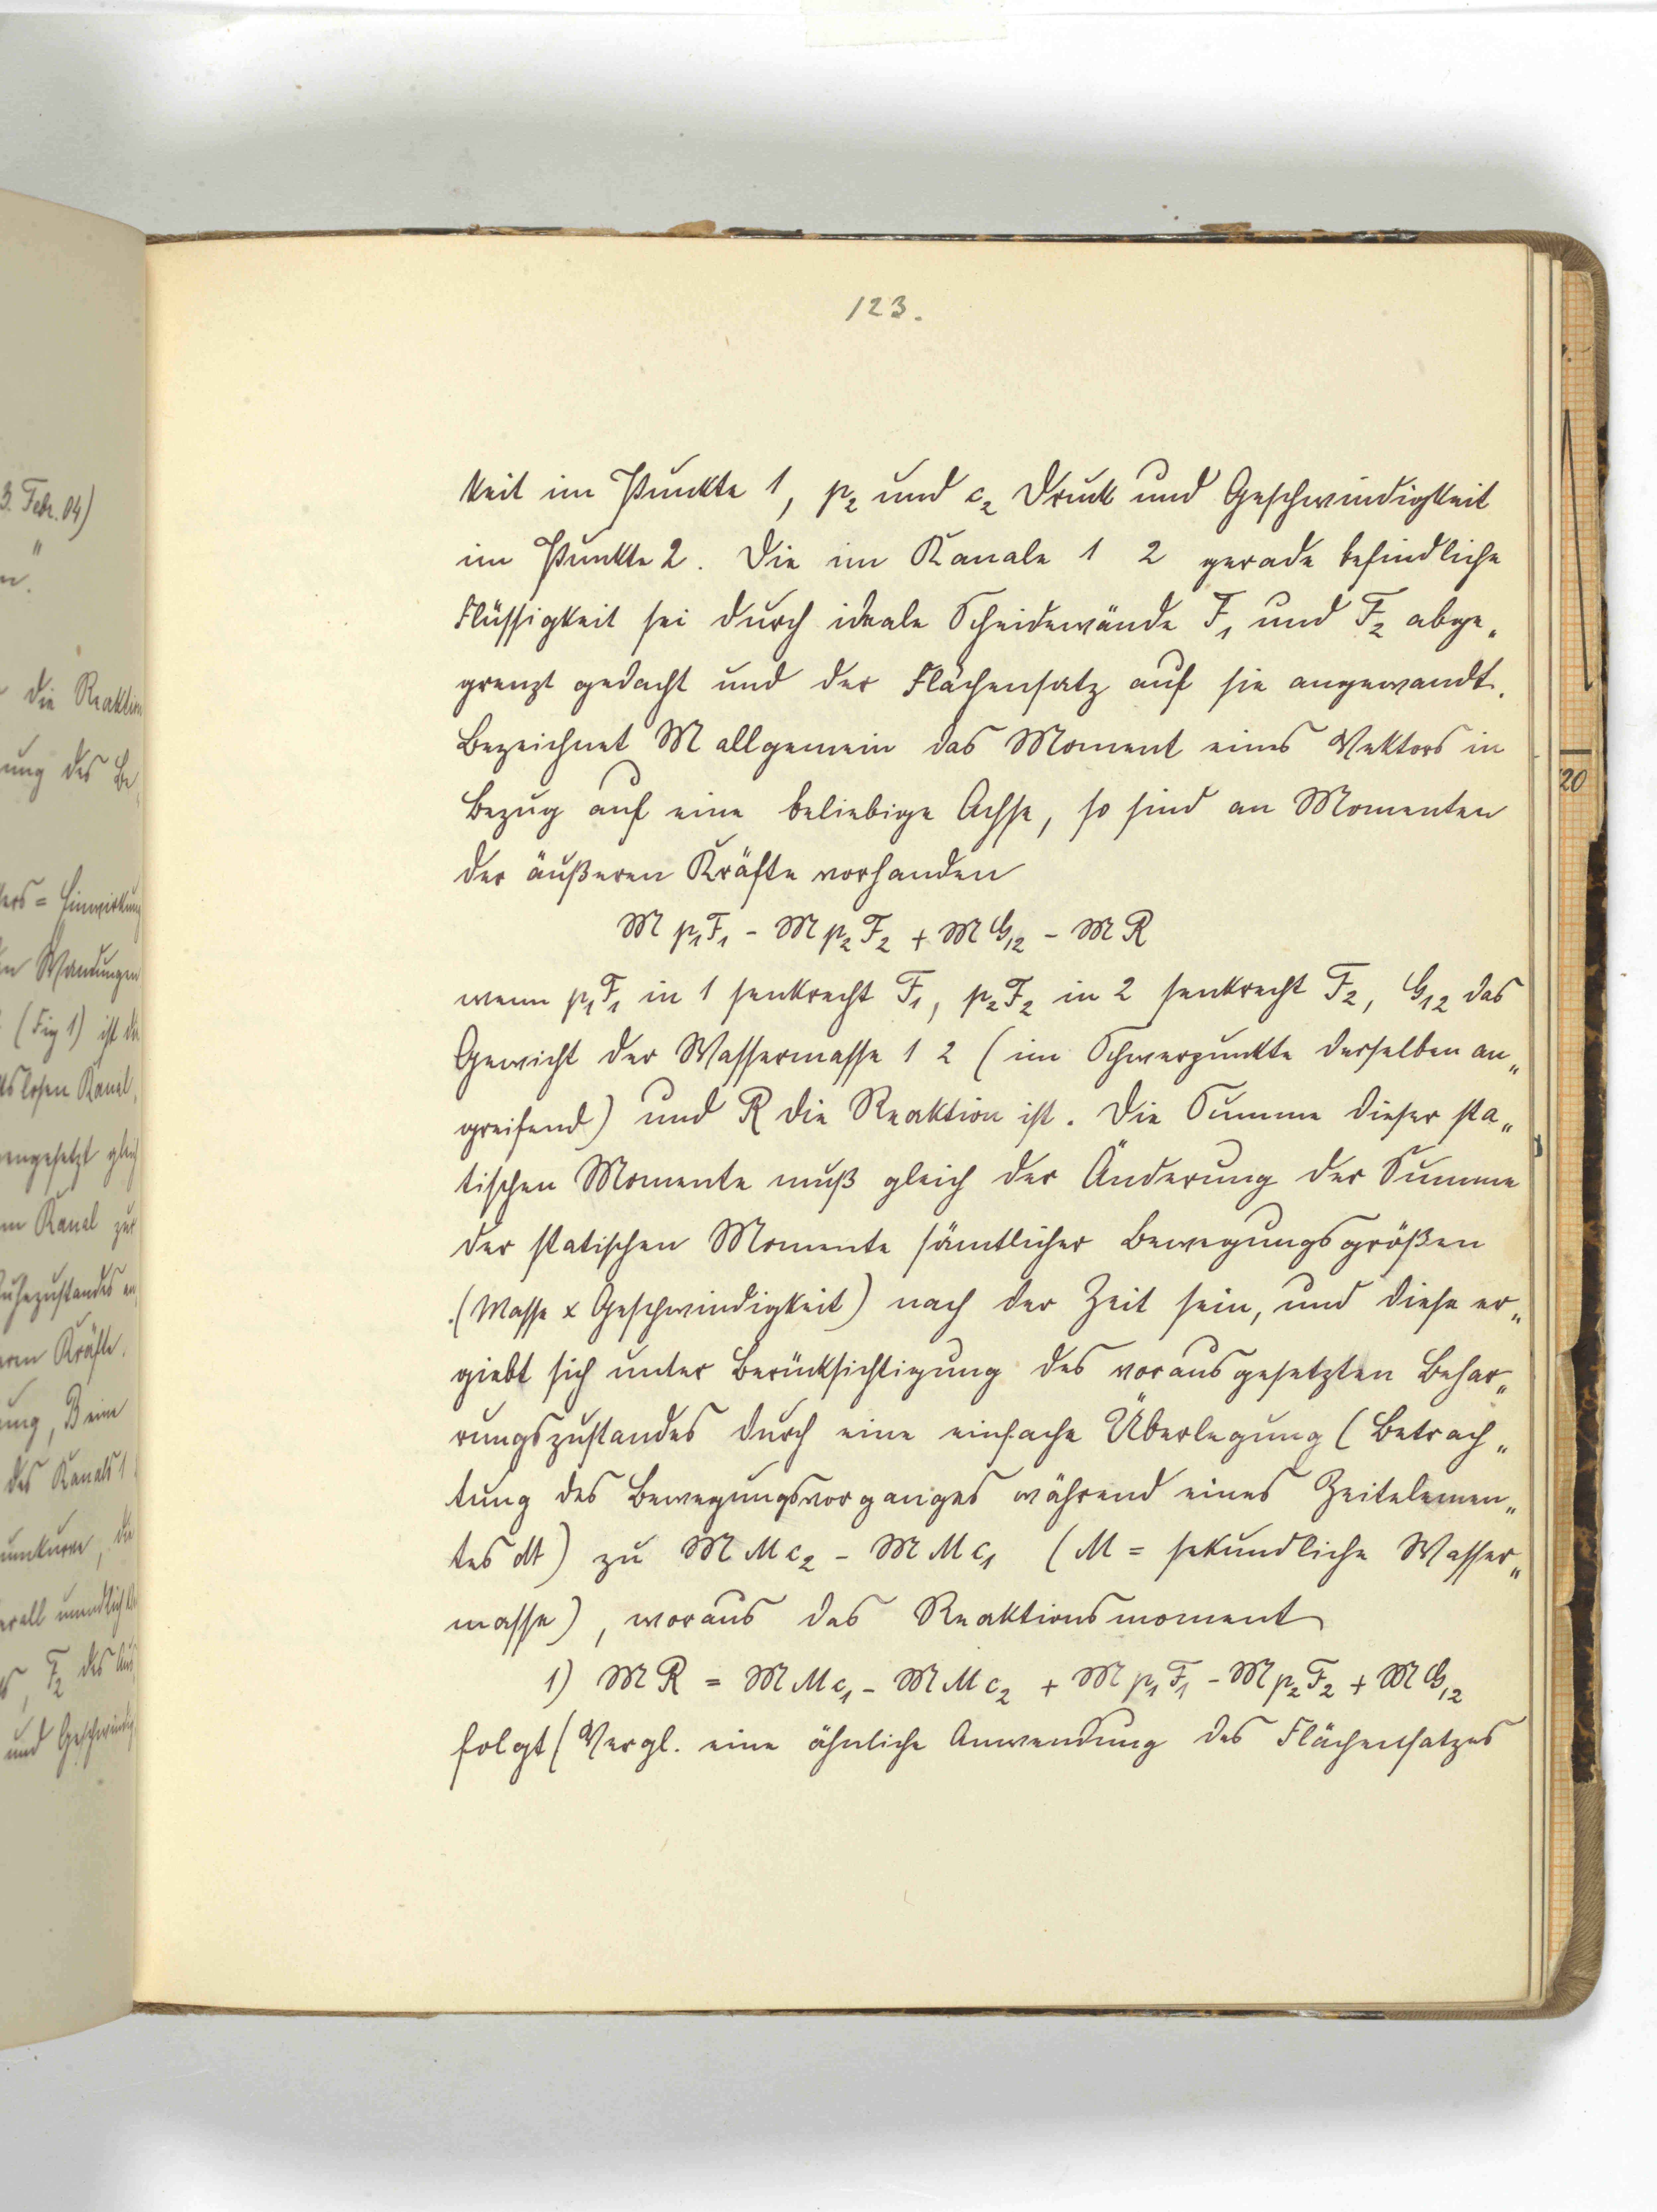 123.
keit im Punkte 1, p₂ und c₂ Druck und Geschwindigkeit
im Punkte 2. Die im Kanale 1 2 gerade befindliche
Flüssigkeit sei durch ideale Scheidewände F₁ und F₂ abge„
grenzt gedacht und der Flächensatz auf sie angewandt.
Bezeichnet 𝔐 allgemein das Moment eines Vektors in
Bezug auf eine beliebige Achse, so sind an Momenten
der äußeren Kräfte vorhanden
𝔐 p₁F₁ - 𝔐 p₂F₂ + 𝔐 G₁₂ - 𝔐 R
wenn p₁F₁ in 1 senkrecht F₁, p₂F₂ in 2 senkrecht F₂, G₁₂ das
Gewicht der Wassermasse 1 2 (im Schwerpunkte derselben an„
greifend) und R die Reaktion ist. Die Summe dieser sta„
tischen Momente muß gleich der Änderung der Summe
der statischen Momente sämtlicher Bewegungsgrößen
(Masse x Geschwindigkeit) nach der Zeit sein, und diese er„
giebt sich unter Berücksichtigung des vorausgesetzten Behar„
rungszustandes durch eine einfache Überlegung (Betrach„
tung des Bewegungsvorganges während eines Zeitelemen„
tes dt) zu 𝔐 M c₂ - 𝔐 M c₁ (M = sekundliche Wasser„
masse), woraus das Reaktionsmoment
1) 𝔐 R = 𝔐 M c₁ - 𝔐 M c₂ + 𝔐 p₁F₁ - 𝔐 p₂F₂ + 𝔐 G₁₂
folgt (Vergl. eine ähnliche Anwendung des Flächensatzes
3. Febr. 04)
die Reaktion
ung des Be
= Einwirkung
Wandungen
(Fig 1) ist
Kanal
engesetzt gleich
Kanal zur
Kräfte.
ung, B eine
des Kanals 1
F₂ des Aus
und Geschwindig
20